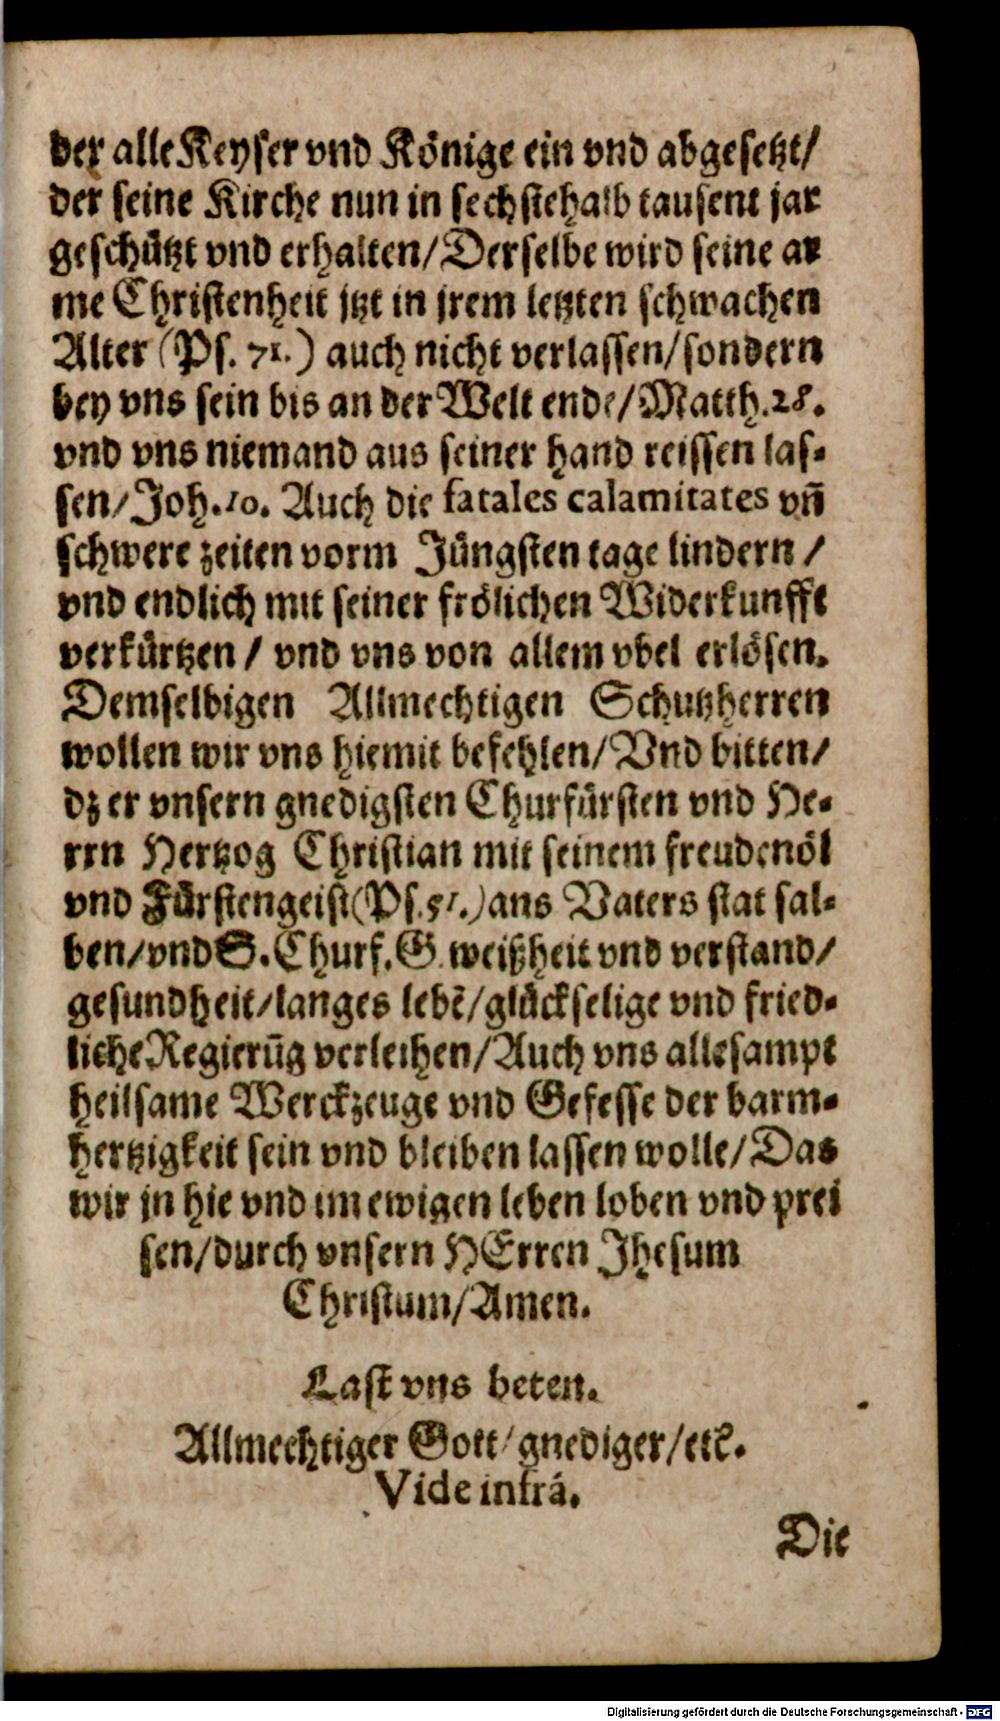 der alle Keyser vnd Könige ein vnd abgesetzt/
der seine Kirche nun in sechstehalb tausent jar
geschützt vnd erhalten/Derselbe wird seine ar
me Christenheit jtzt in jrem letzten schwachen
Alter (Ps. 71.) auch nicht verlassen/sondern
bey vns sein bis an der Welt ende/Matth.28.
vnd vns niemand aus seiner hand reissen las-
sen/Joh.10. Auch die fatales calamitates vn̄
schwere zeiten vorm Jüngsten tage lindern /
vnd endlich mit seiner frölichen Widerkunfft
verkürtzen / vnd vns von allem vbel erlösen.
Demselbigen Allmechtigen Schutzherren
wollen wir vns hiemit befehlen/Vnd bitten/
dz er vnsern gnedigsten Churfürsten vnd He-
rrn Hertzog Christian mit seinem freudenöl
vnd Fürstengeist(Ps.51.)ans Vaters stat sal-
ben/vnd S.Churf.G. weißheit vnd verstand/
gesundheit/langes lebē/glückselige vnd fried-
liche Regierūg verleihen/Auch vns allesampt
heilsame Werckzeuge vnd Gefesse der barm-
hertzigkeit sein vnd bleiben lassen wolle/Das
wir jn hie vnd im ewigen leben loben vnd prei
sen/durch vnsern HErren Jhesum
Christum/Amen.
Last vns beten.
Allmechtiger Gott/gnediger/etc.
Vide infrá.
Die
Digitalisierung gefördert durch die Deutsche Forschungsgemeinschaft - DFG